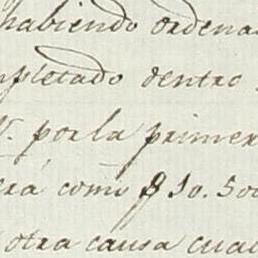 habiendo ordena
mpletado dentro
V. por la primer
erá como $ 10.500
otra causa cual